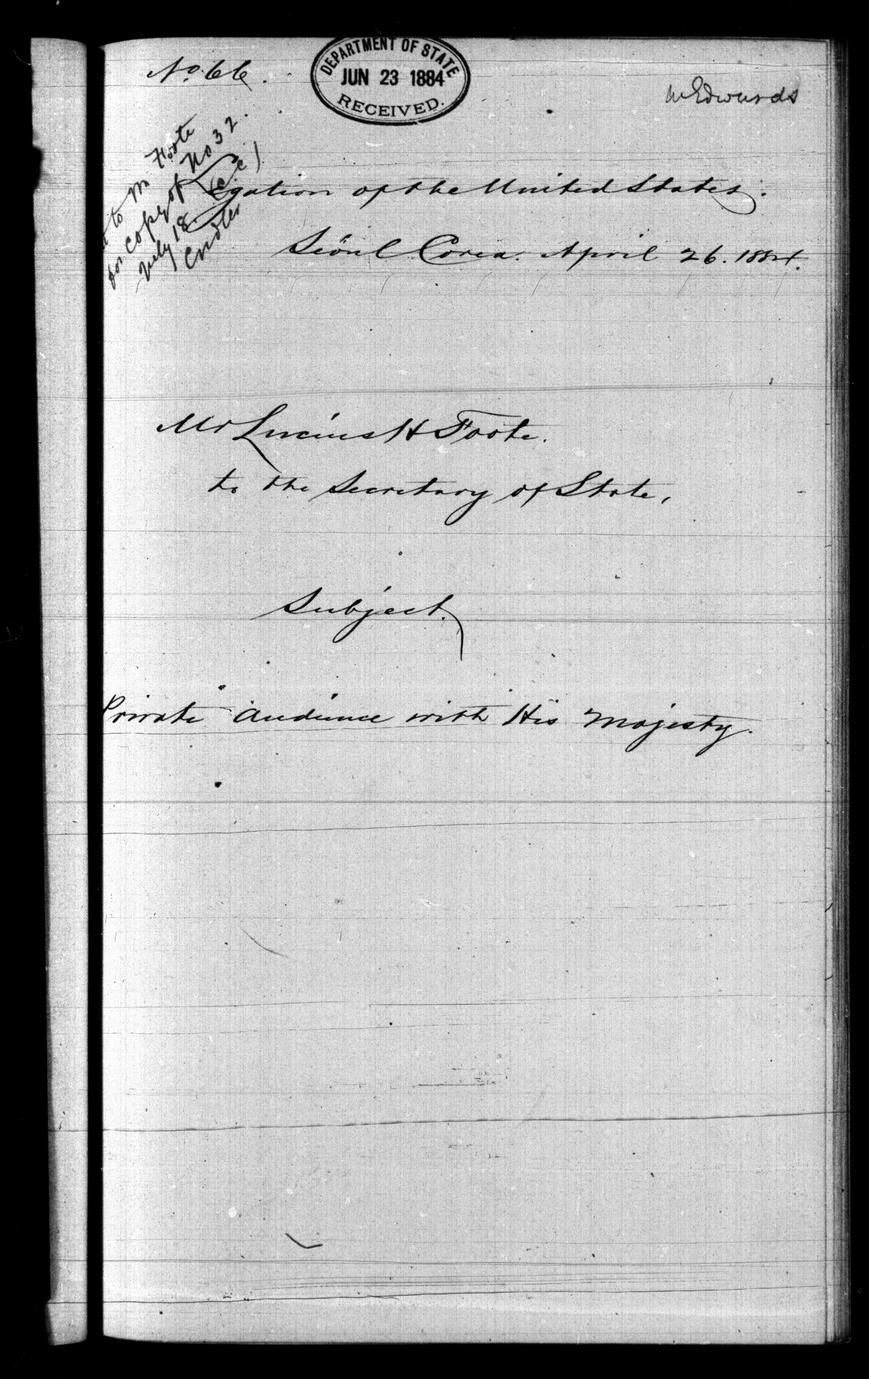 No. 66.
DEPARTMENT OF STATE
JUN 23 1884
RECEIVED.
Edwards
to Mr Foote
for copy of No 32.
July 18.
Legation of the United States.
Séoul Corea. April 26. 1884.
Mr Lucius H Foote.
to the Secretary of State,
Subject.
Private audience with His Majesty.